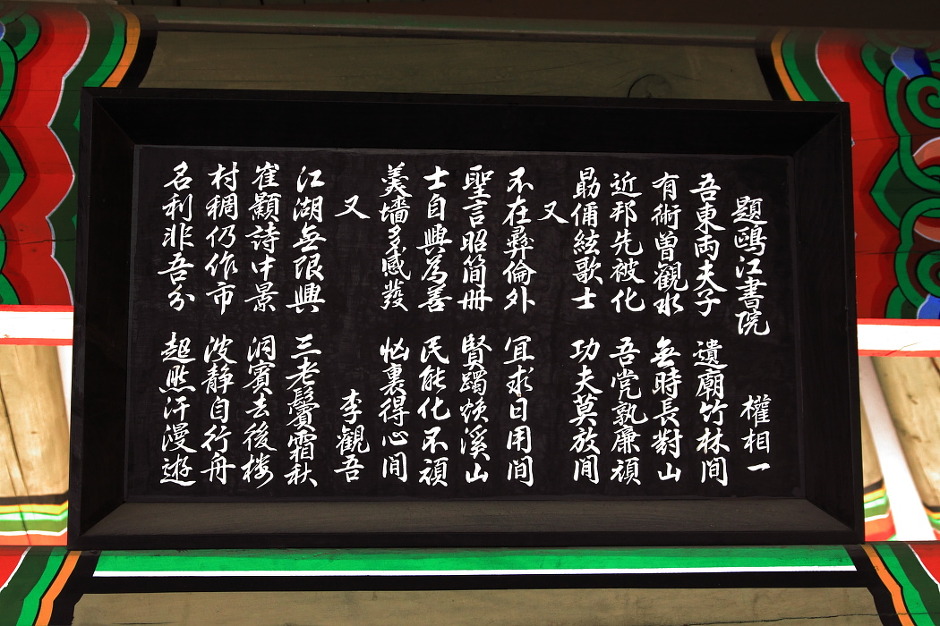 題鷗江書院 權相一
吾東兩夫子 遺廟竹林間
有術曾觀水 無時長對山
近邦先被化 吾党孰廉頑
勗俑絃歌士 功夫莫放間
又
不在彛倫外 宜求日用間
聖言昭簡冊 賢躅煥溪山
士自興為善 民能化不頑
羹墻多感發 怭裏得心間
又 李觀吾
江湖無限興 三老鬢霜秋
崔顥詩中景 洞賓去後楼
村稠仍作市 波静自行舟
名利非吾分 超然汗漫遊